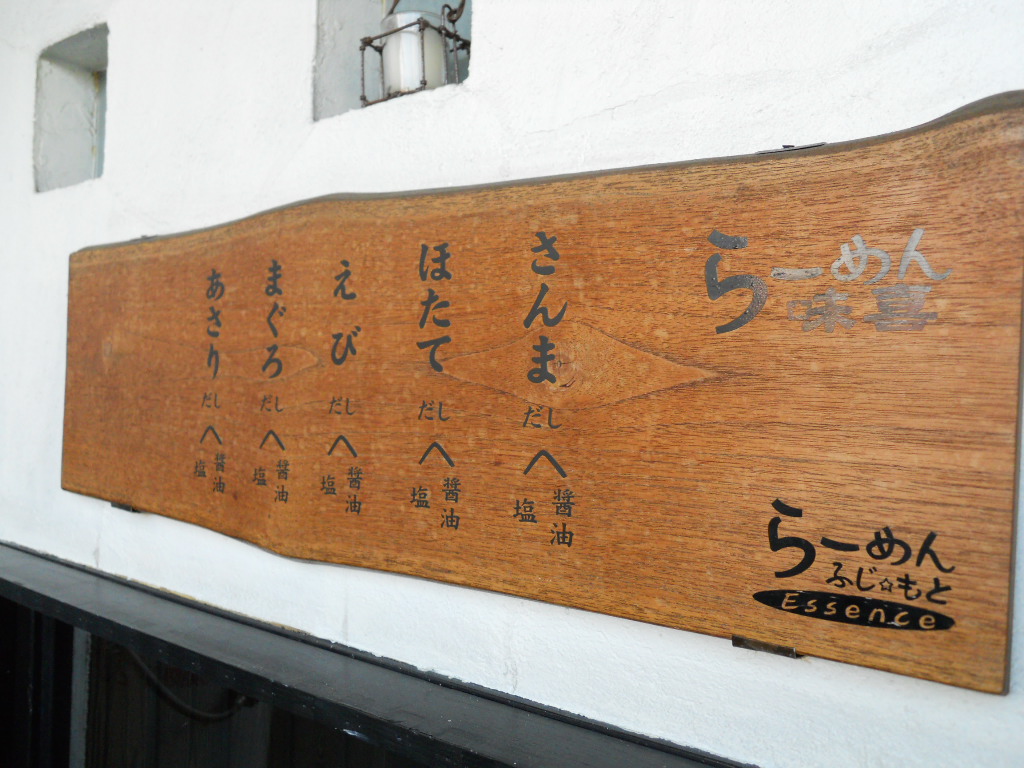 らーめん
味喜
さんま
だし
へ
醤油
塩
ほたて
だし
へ
醤油
塩
えび
だし
へ
醤油
塩
まぐろ
だし
へ
醤油
塩
あさり
だし
へ
醤油
塩
らーめん
ふじ☆もと
Essence